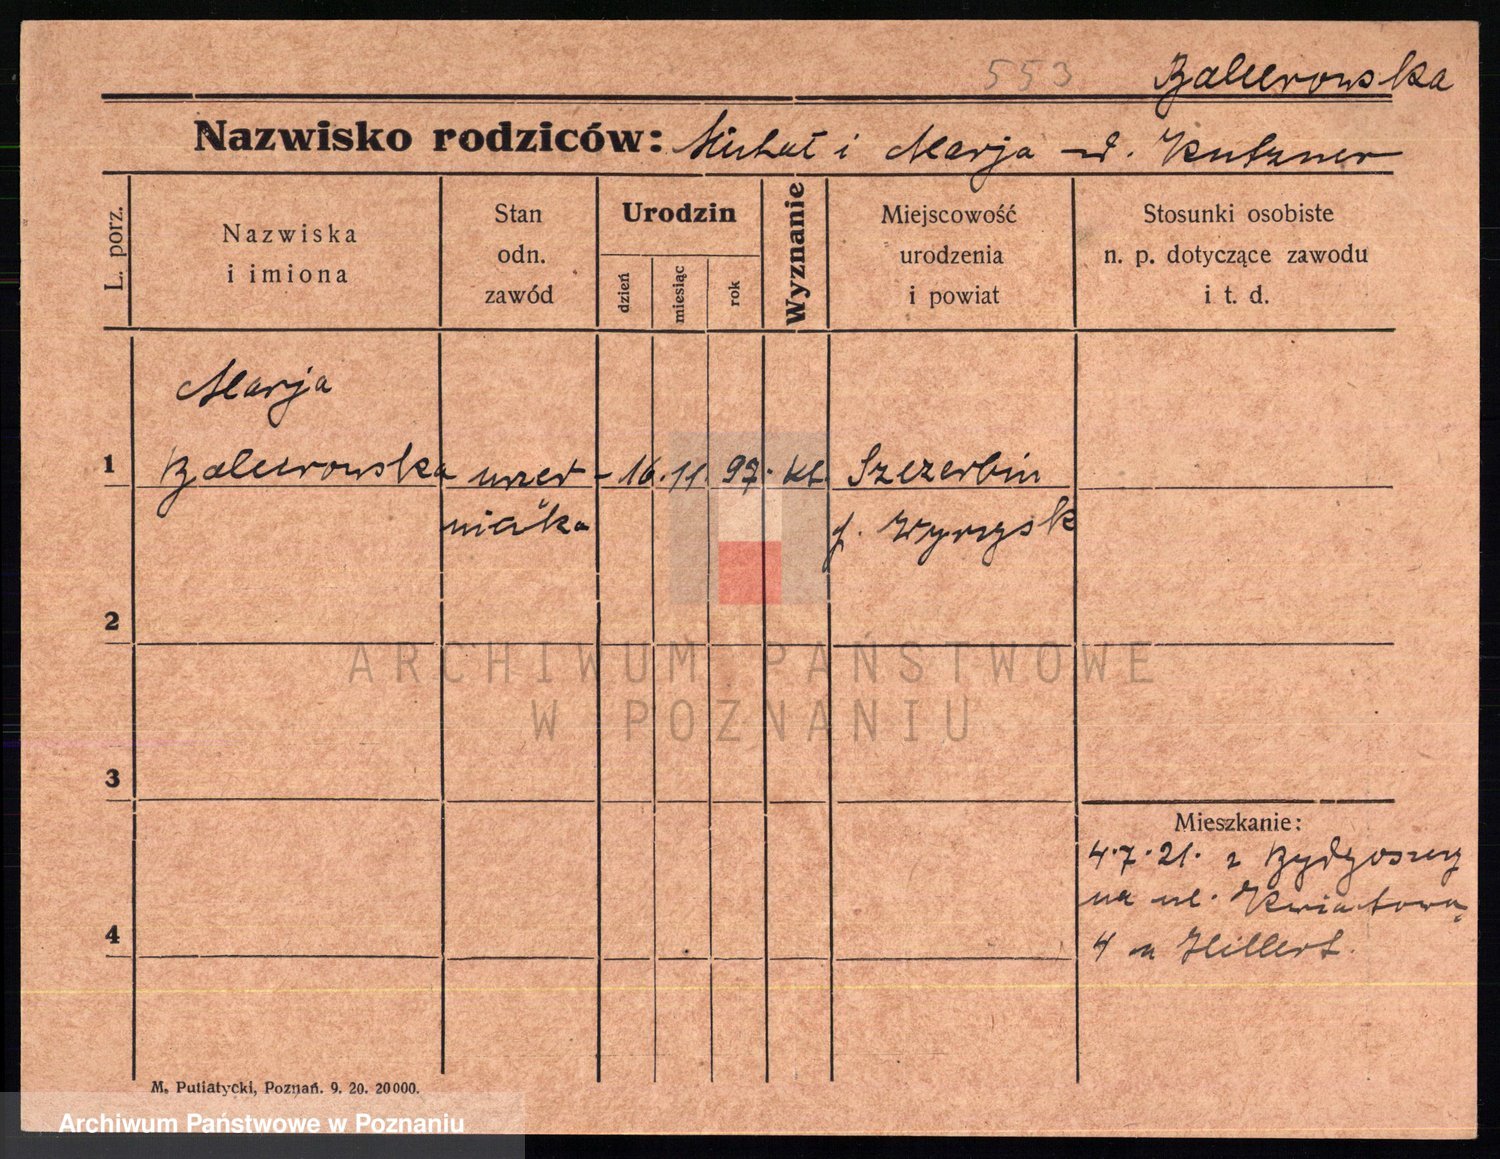 553
Balcerowska
Nazwisko rodziców: Michał i Marja d. Kutzner
L. porz.
Nazwiska
i imiona
Stan
odn.
zawód
Urodzin
dzień
miesiąc
rok
Wyznanie
Miejscowość
urodzenia
i powiat
Stosunki osobiste
n. p. dotyczące zawodu
i t. d.
Marja
1 Balcerowska urzęd- 16. 11. 97. kt. Szczerbin
niczka p. Wyrzysk
2
ARCHIWUM PAŃSTWOWE
W POZNANIU
3
Mieszkanie:
4.7.21. z Bydgoszczy
na ul. Kwiatową
4
4 u Hillert.
M. Putiatycki, Poznań. 9. 20. 20000.
Archiwum Państwowe w Poznaniu